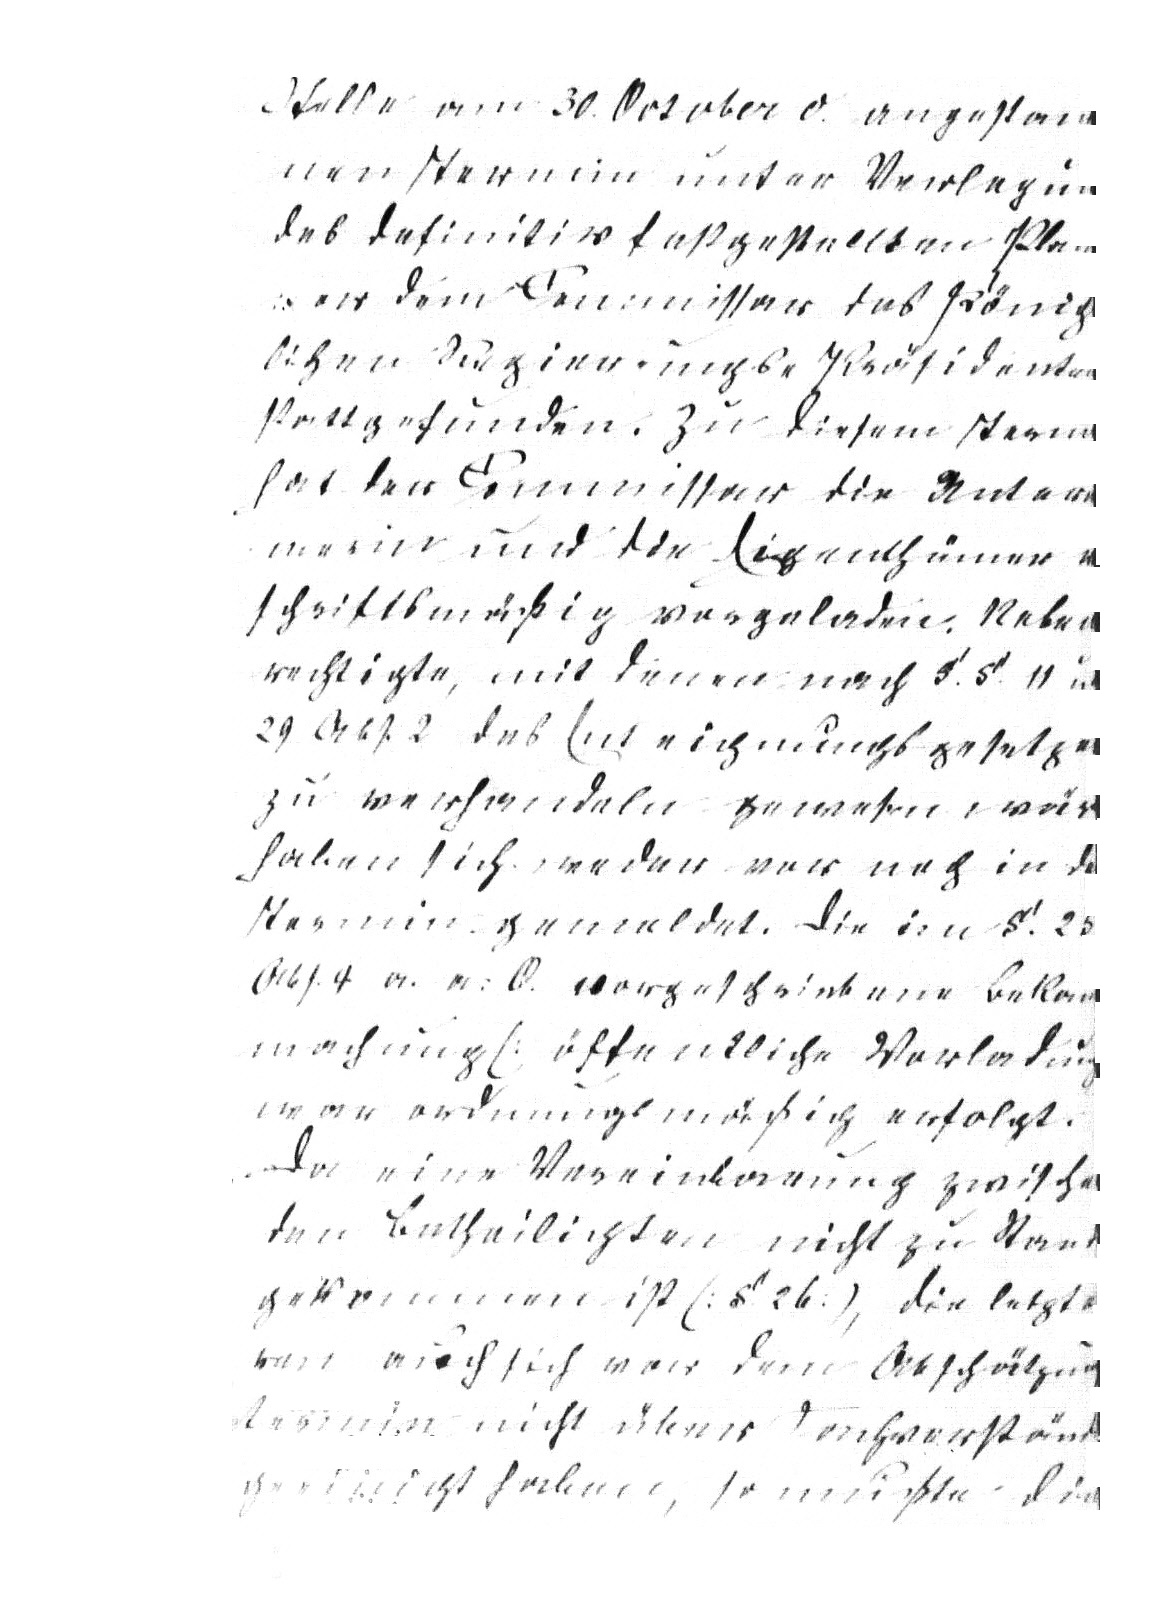 Stelle am 30. October d. angestan
nen Termin unter Vorlegun
des definitiv festgestellten Plan
vor dem Commissar des König
lichen Regierungs Präsidenten
stattgefunden. Zu diesem Term
hat der Commissar die Untern
merin und die Eigenthümer v
schriftsmäßig vorgeladen. Neben
rechtigte, mit denen nach §. §. 11 u
29 Abs. 2 des Enteignungsgesetze
zu verhandeln gewesen wär
haben sich weder vor noch in de
Termin gemeldet. Die im §. 25
Abs. 4 a. a: O. vorgeschriebene Bekan
machung (: öffentliche Vorladung
war ordnungsmäßig erfolgt.
Da eine Vereinbarung zwische
den Betheiligten nicht zu Stand
gekommen ist (: § 26 :), die letzte
ren auch sich vor dem Abschätzung
termin nicht über Sachverständ
geeinigt haben, so mußte die